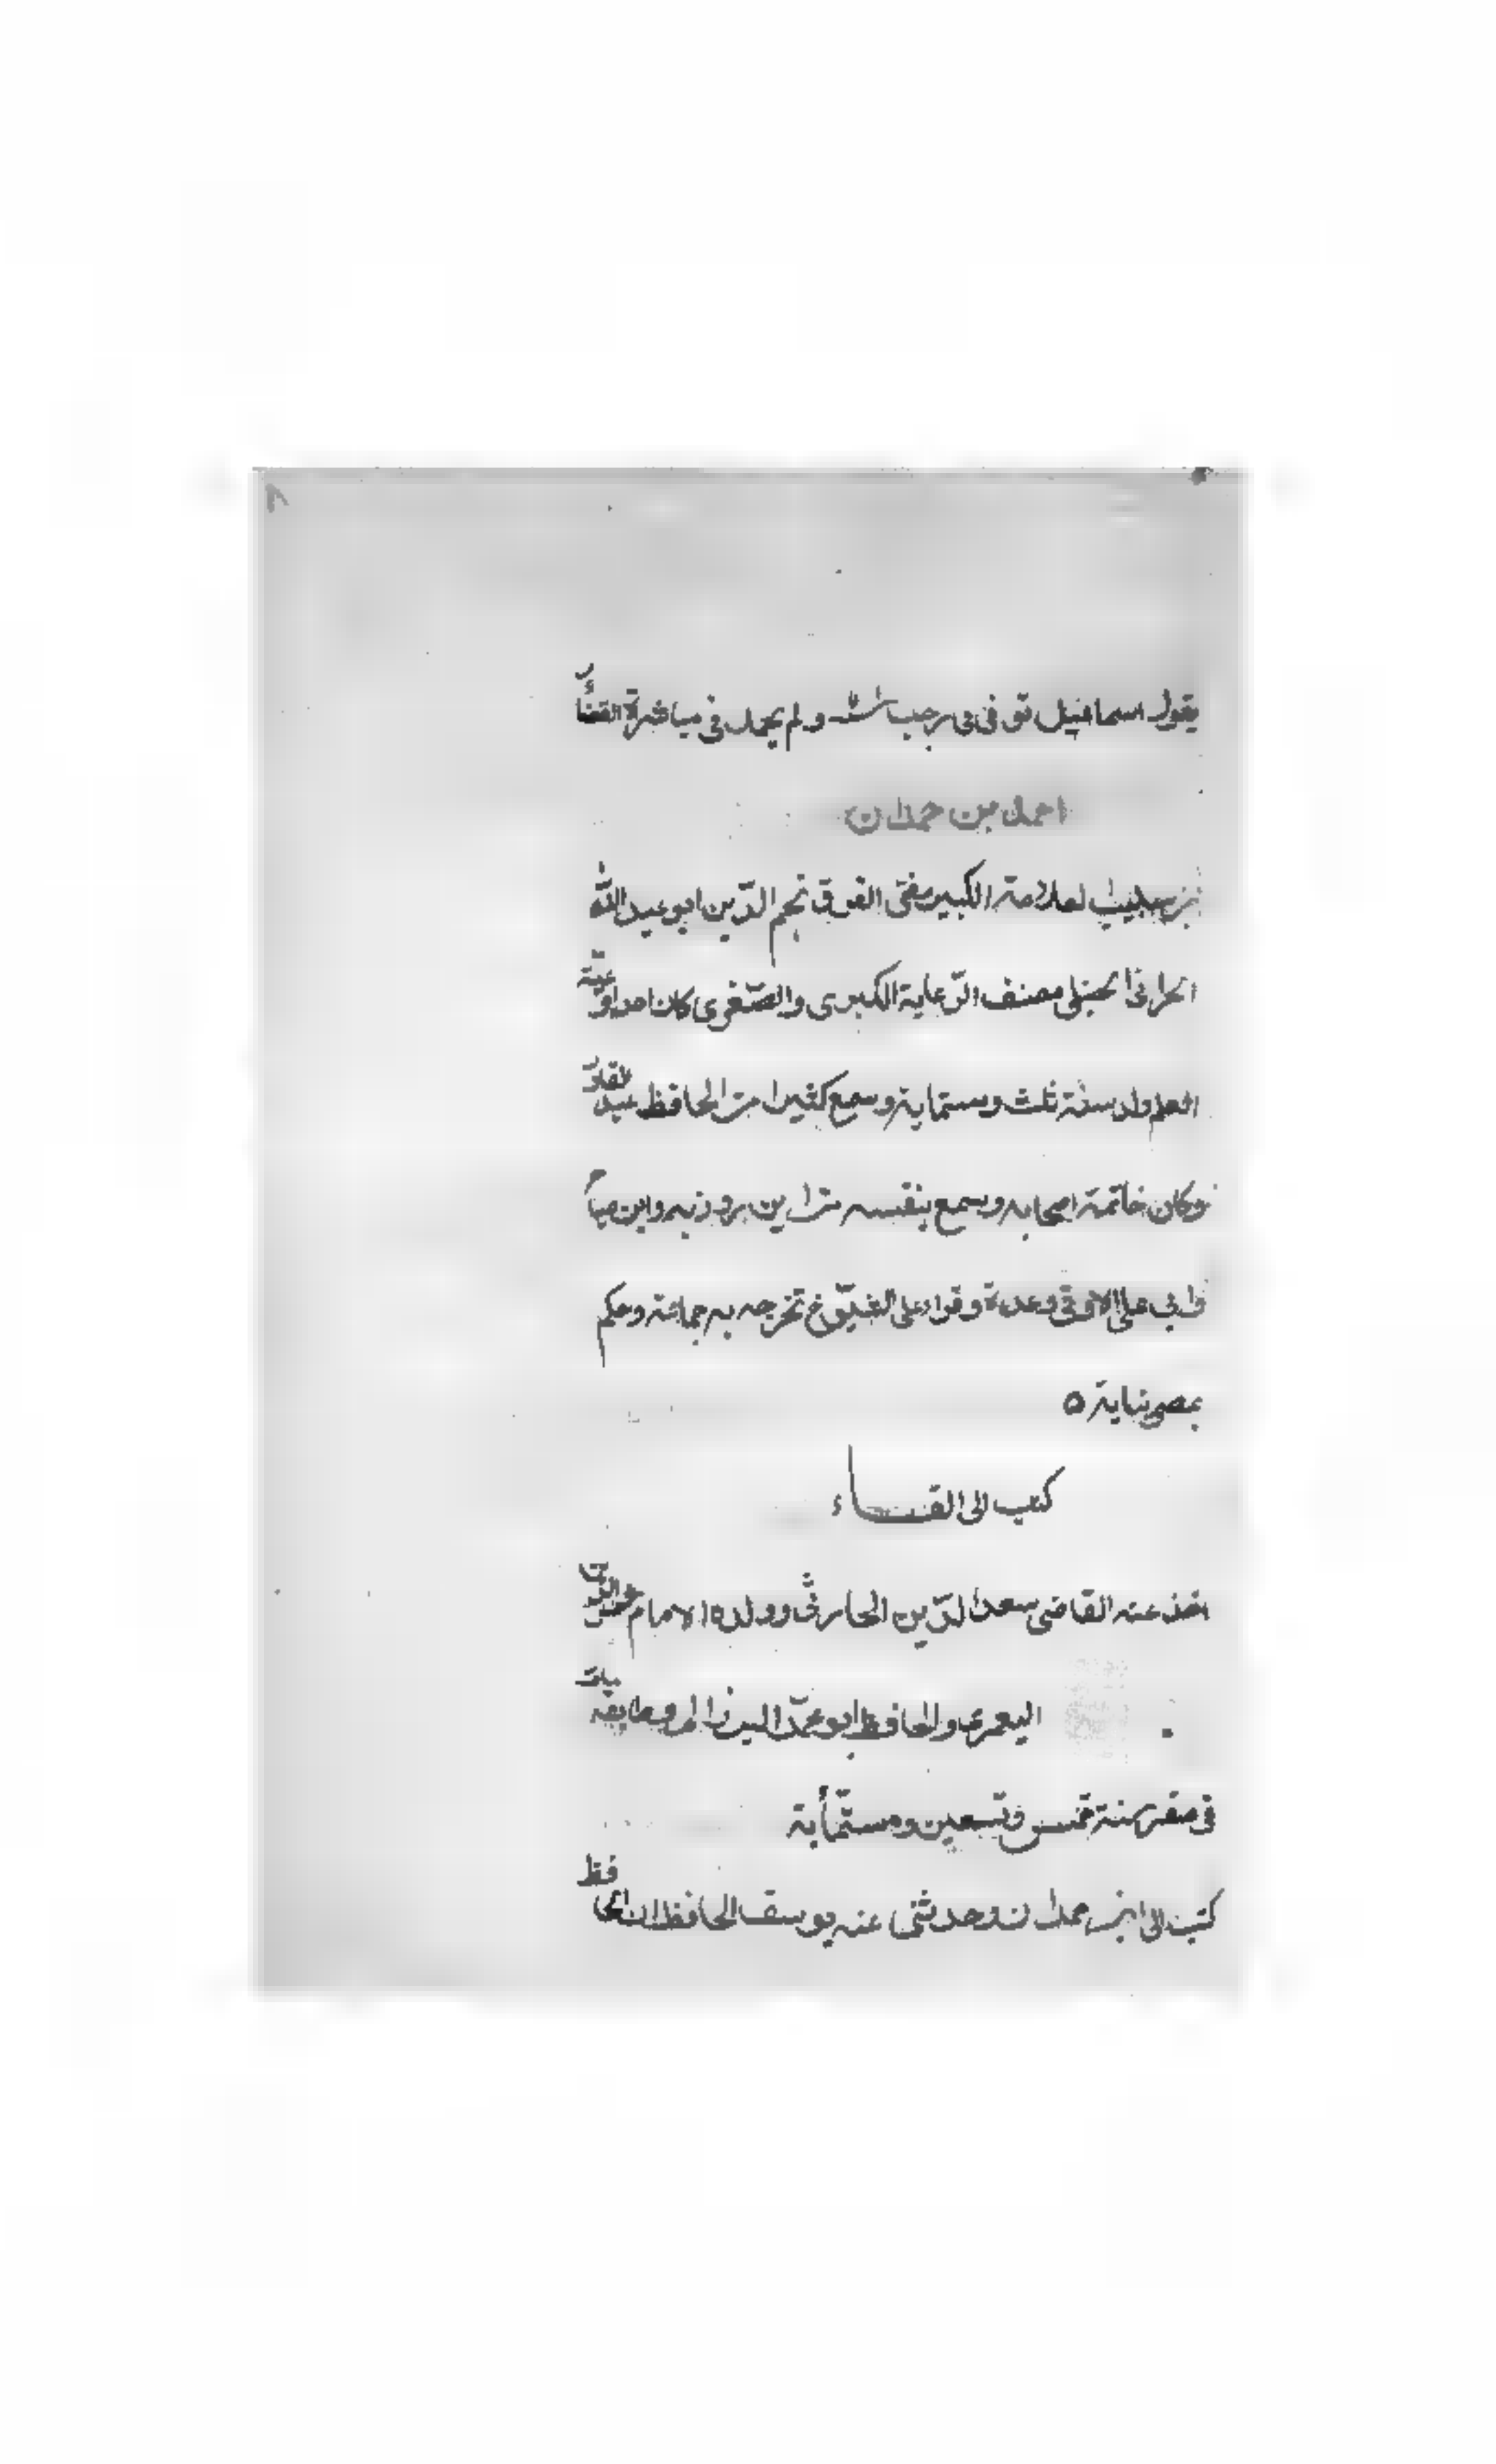 يقول اسماعيل توفى فى رجب سنة ولم يحمد فى مباشرة القضاء
احمد بن حمدان
بن شبيب العلامة الكبير مفتى الفرق نجم الدّين ابو عبد الله
الحرانى الحنبلى مصنف الرّعاية الكبرى والصّغرى كان احد اوعية
العلم ولد سنة ثلث وستماية وسمع كثيرا من الحافظ عبد القادر
وكان خاتمة اصحابه وسمع بنفسه من ابن روزبه وابن صباح
وابى على الاوقى وعدة وقرا على الشيوخ تخرجه به جماعة وحكم
بمصر نيابة ٥
كتب الى القــاء
اخذ عنه القاضى سعد الدّين الحارثى وولده الامام شمس الدين
اليعمرى والحافظ ابو محمّد البرزالى وطايفة مات
فى صفر سنة خمس وتسعين وستّمأية
كتب الى ابن حمدان وحدثنى عنه يوسف الحافظ ان الحافظ